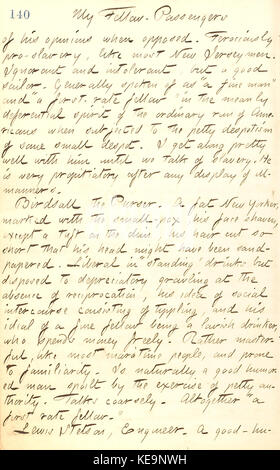 140 My Fellow-Passengers
of his opinions when opposed. Ferociously
pro-slavery, like most New Jerseymen.
Ignorant and intolerant, but a good
sailor. Generally spoken of as "a fine man
and a first-rate fellow" in the meanly
deferential spirit of the ordinary run of Ame-
ricans when subjected to the petty despotism
of some small despot. I get along pretty
well with him until we talk of slavery. He
is very propitiatory after any display of ill-
manners.
Birdsall the Purser. A fat New Yorker,
marked with the small-pox, his face shaven,
except a tuft on the chin; his hair cut so
short that his head might have been sand-
papered. Liberal in "standing" drinks but
disposed to depreciatory growling at the
absence of reciprocation, his idea of social
intercourse consisting of tippling, and his
ideal of a fine fellow being a lavish drinker,
who spends money freely. Rather master-
ful, like most marathon people, and prone
to familiarity. Is naturally a good humor-
ed man spoilt by the exercise of petty au-
thority. Talks coarsely. Altogether "a
first rate fellow."
Lewis Stetson, Engineer. A good-hu-
alamy
www.alamy.com - KE9NWH